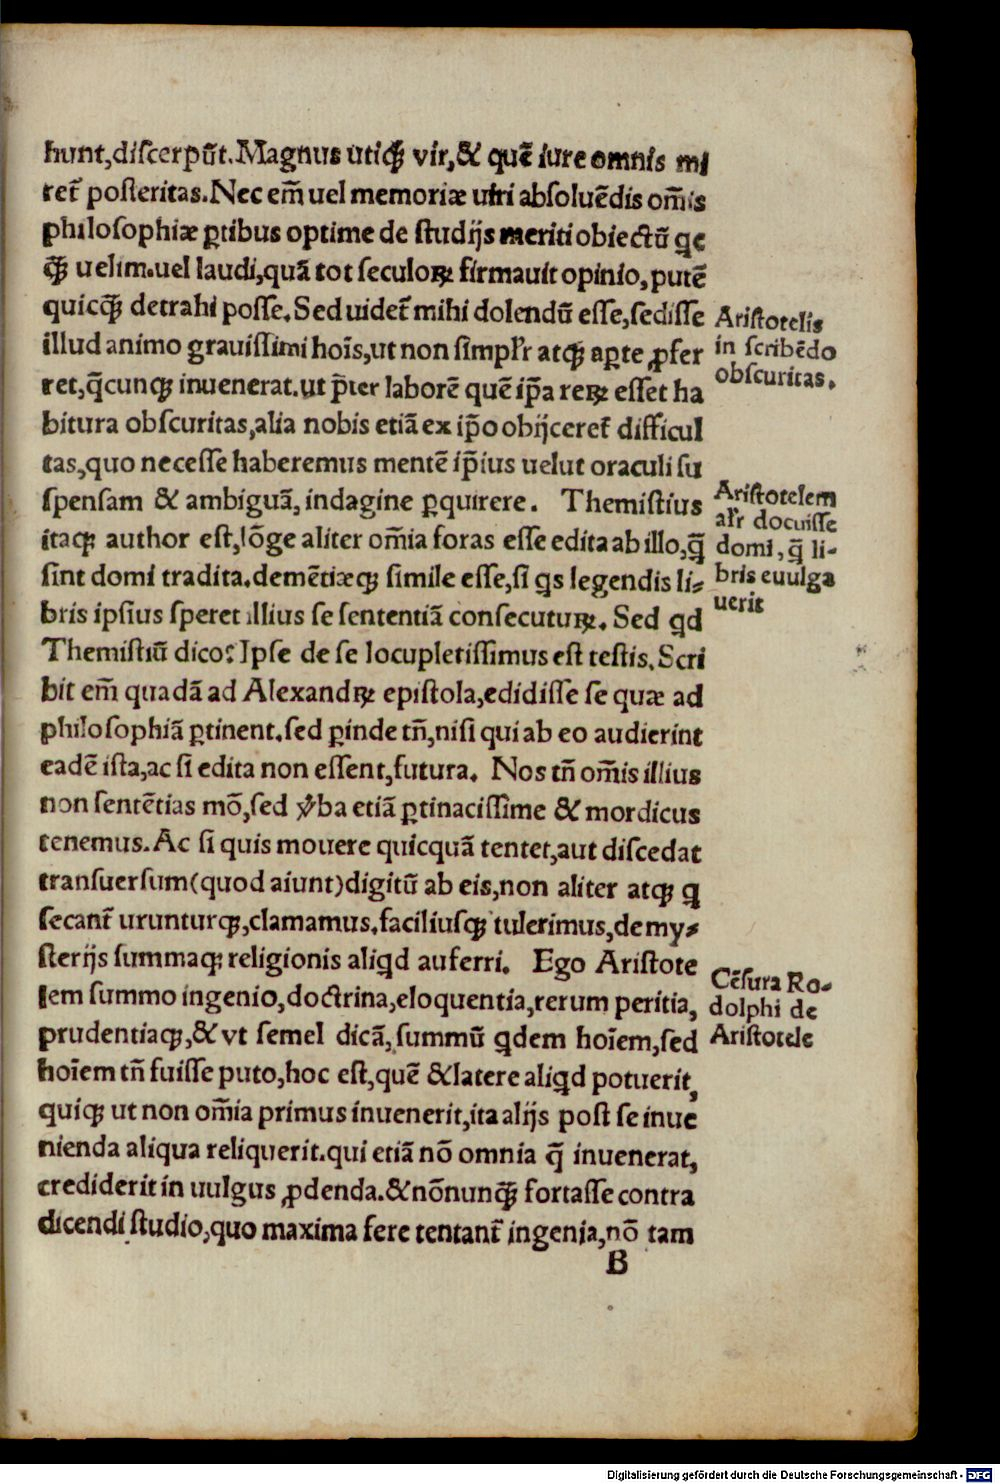 hunt,discerpūt.Magnus utiqꝫ vir,& quē iure omnis mi
ret̃ posteritas.Nec em̃ uel memoriæ uiri absoluēdis om̃is
philosophiæ ꝑtibus optime de studijs meriti obiectū qc
qꝫ̃ uelim.uel laudi,quā tot seculoꝝ firmauit opinio,putē
quicqꝫ̃ detrahi posse.Sed uidet̃ mihi dolendū esse,sedisse
illud animo grauissimi hoīs,ut non simpl̃r atqꝫ aꝑte ꝓfer
ret,q̃cunqꝫ inuenerat.ut p̃ter laborē quē ip̃a reꝝ esset ha
bitura obscuritas,alia nobis etiā ex ip̃o obijceret̃ difficul
tas,quo necesse haberemus mentē ip̃ius uelut oraculi su
spensam & ambiguā,indagine ꝑquirere. Themistius
itaqꝫ author est,lōge aliter om̃ia foras esse edita ab illo,q̃
sint domi tradita.demētiæqꝫ simile esse,si qs legendis li⸗
bris ipsius speret illius se sententiā consecutuꝝ. Sed qd
Themistiū dico? Ipse de se locupletissimus est testis.Scri
bit em̃ quadā ad Alexandꝝ epistola,edidisse se quæ ad
philosophiā ꝑtinent.sed ꝑinde tñ,nisi qui ab eo audierint
eadē ista,ac si edita non essent,futura. Nos tñ om̃is illius
non sentētias mō,sed ꝟba etiā ꝑtinacissime & mordicus
tenemus.Ac si quis mouere quicquā tentet,aut discedat
transuersum(quod aiunt)digitū ab eis,non aliter atqꝫ q
secant̃ urunturqꝫ,clamamus.faciliusqꝫ tulerimus,de my⸗
sterijs summaqꝫ religionis aliqd auferri. Ego Aristote
lem summo ingenio,doctrina,eloquentia,rerum peritia,
prudentiaqꝫ,& vt semel dicā,summū qdem hoīem,sed
hoīem tñ fuisse puto,hoc est,quē & latere aliqd potuerit,
quiqꝫ ut non om̃ia primus inuenerit,ita alijs post se inue
nienda aliqua reliquerit.qui etiā nō omnia q̃ inuenerat,
crediderit in uulgus ꝓdenda.& nōnunqꝫ̃ fortasse contra
dicendi studio,quo maxima fere tentant̃ ingenia,nō tam
B
Aristotelis
in scribēdo
obscuritas.
Aristotelem
al̃r docuisse
domi,q̃ li-
bris euulga
uerit
Cēsura Ro-
dolphi de
Aristotele
Digitalisierung gefördert durch die Deutsche Forschungsgemeinschaft - DFG